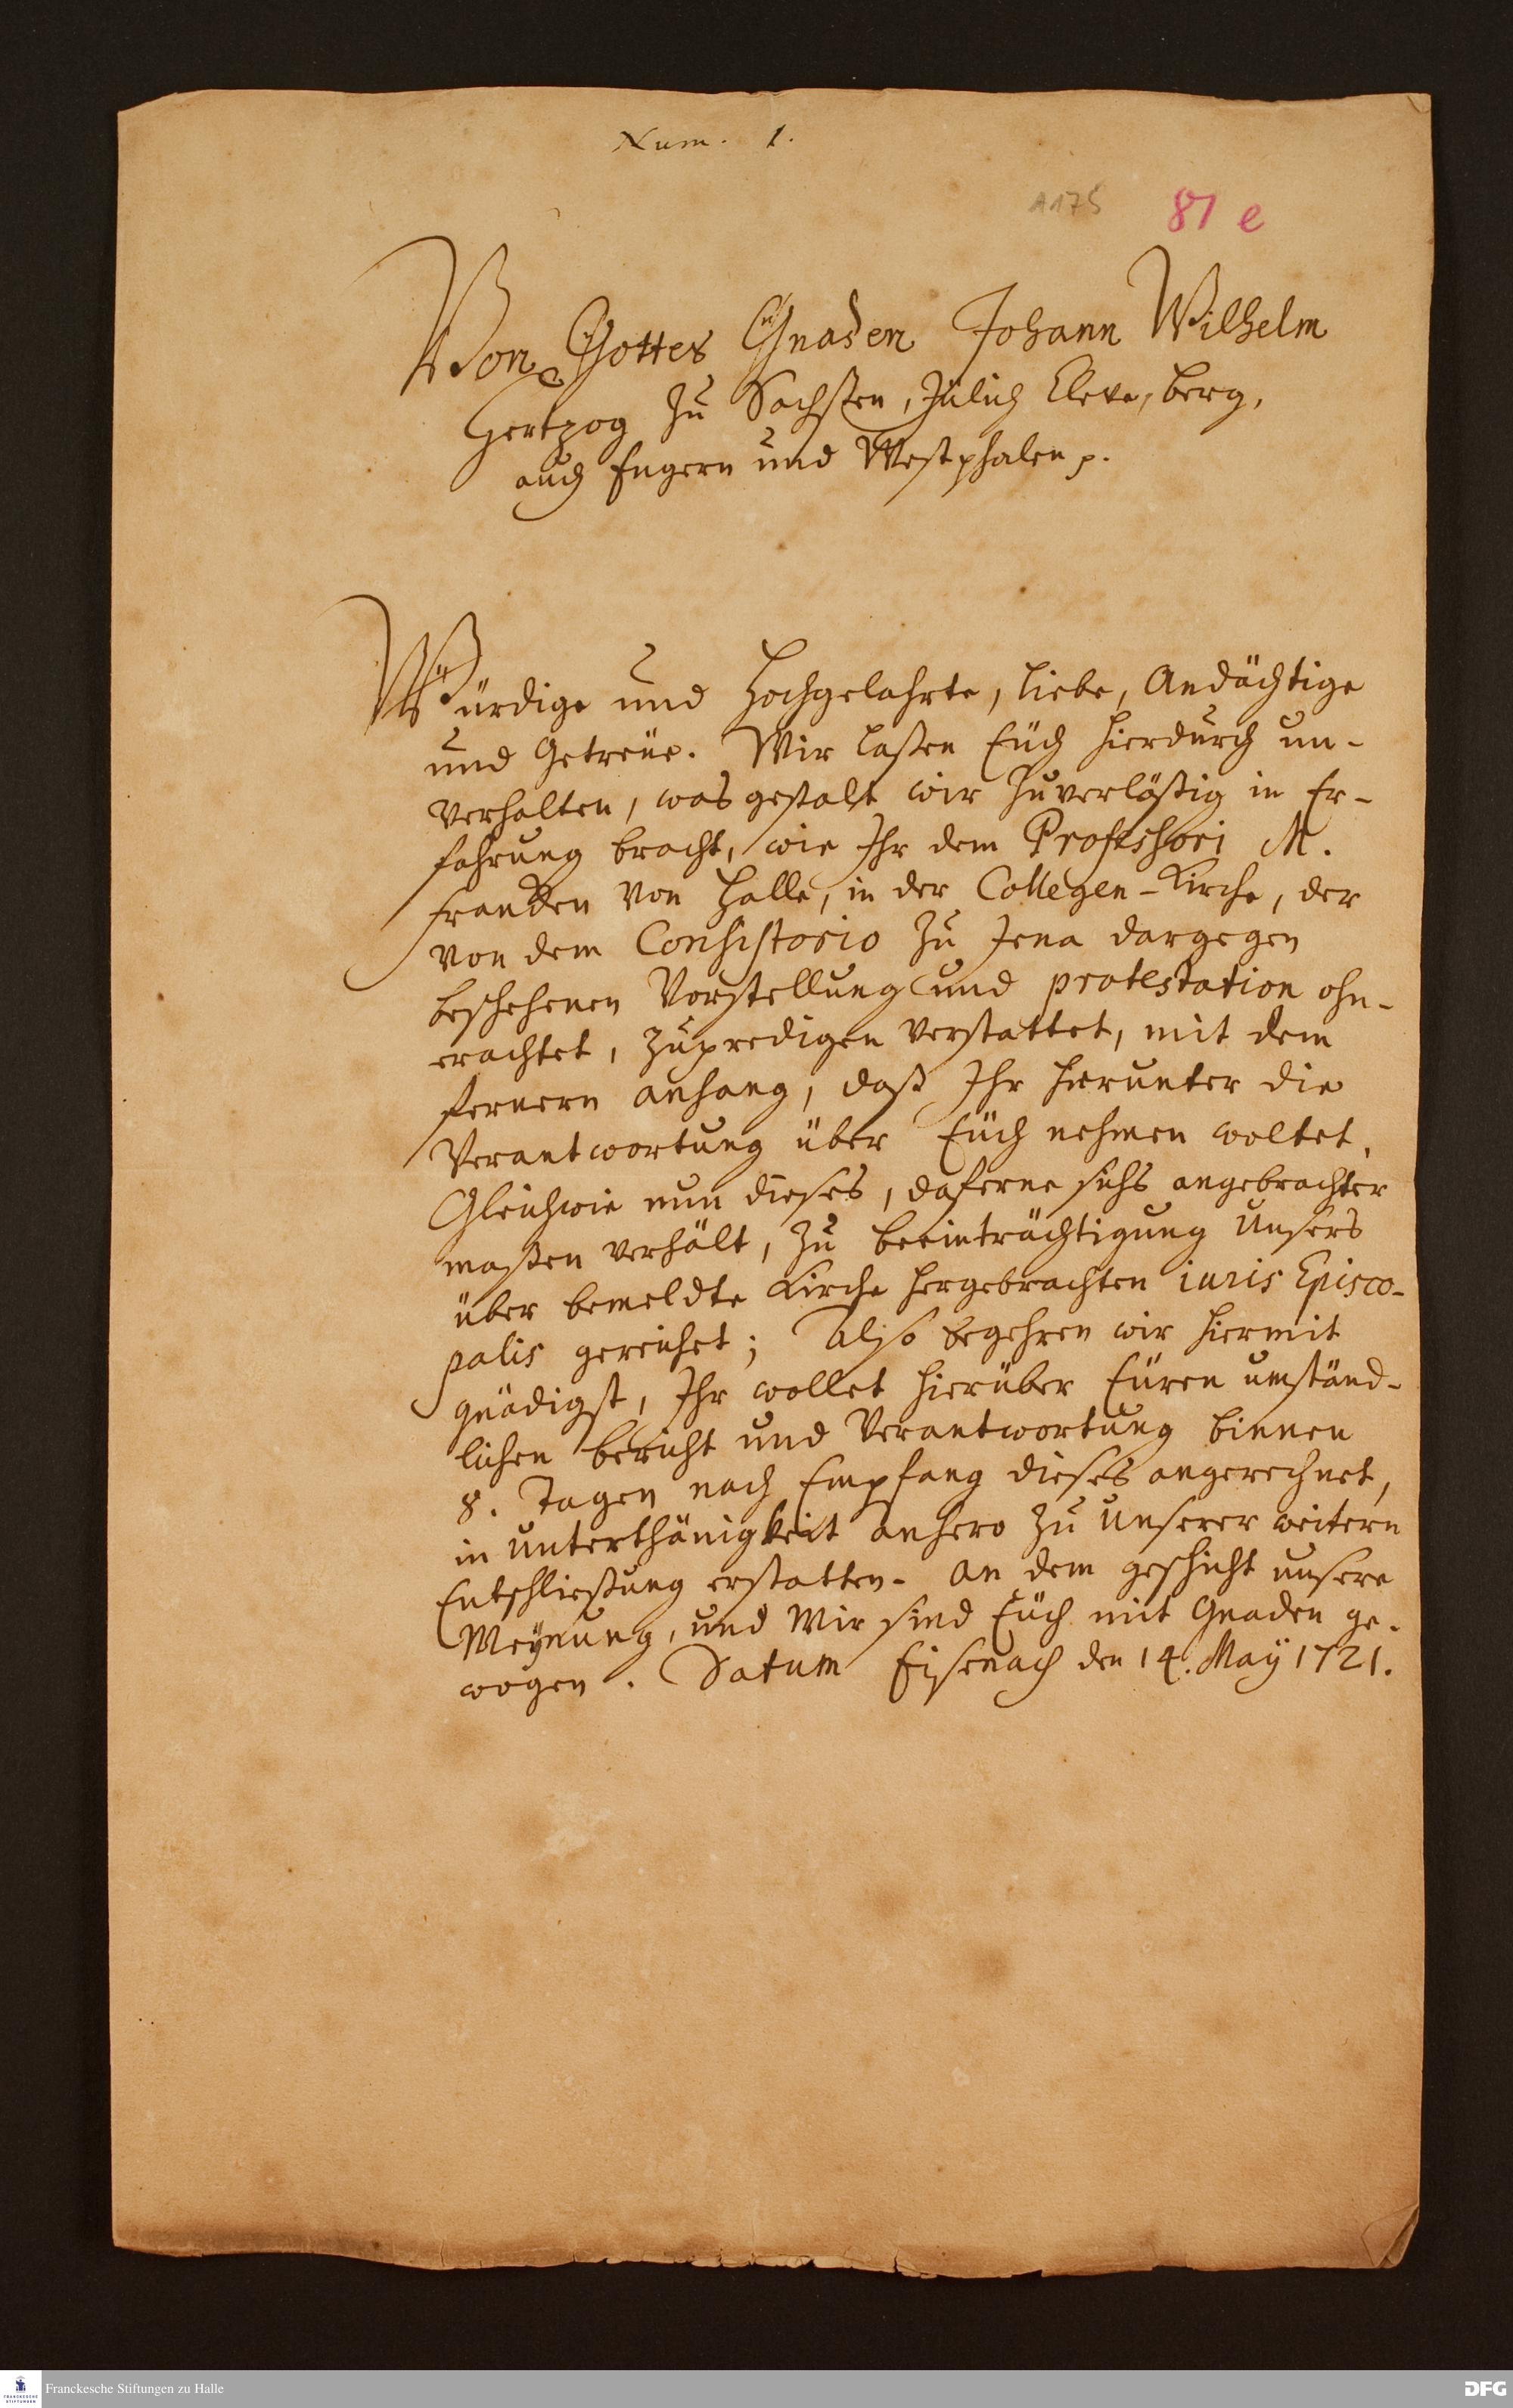 Num. 1.
A175 81 e
Von Gottes Gnaden Johann Wilhelm
Hertzog zu Sachßen, Jülich Cleve, Berg,
auch Engern und Westphalen p.
Würdige und Hochgelahrte, liebe, Andächtige
und Getreüe. Wir laßen Eüch hierdurch un-
verhalten, was gestalt wir zuverläßig in Er-
fahrung bracht, wie Ihr dem Professori M.
Francken von Halle, in der Collegen-Kirche, der
von dem Consistorio zu Jena dargegen
beschehenen Vorstellung und protestation ohn-
erachtet, zupredigen verstattet, mit dem
fernern anhang, daß Ihr hierunter die
Verantwortung über Eüch nehmen woltet.
Gleichwie nun dieses, daferne sichs angebrachter
maßen verhält, zu beeinträchtigung Unsers
über bemeldte Kirche hergebrachten iuris Episco-
palis gereichet; Also begehren wir hiermit
gnädigst, Ihr wollet hierüber Eüren umständ-
lichen bericht und Verantwortung binnen
8. Tagen nach Empfang dieses angerechnet,
in unterthänigkeit anhero zu Unserer weitern
Entschließung erstatten. An dem geschicht unsere
Meÿnung, und Wir sind Eüch mit Gnaden ge-
wogen. Datum Eisenach den 14. Maÿ 1721.
Franckesche Stiftungen zu Halle
DFG